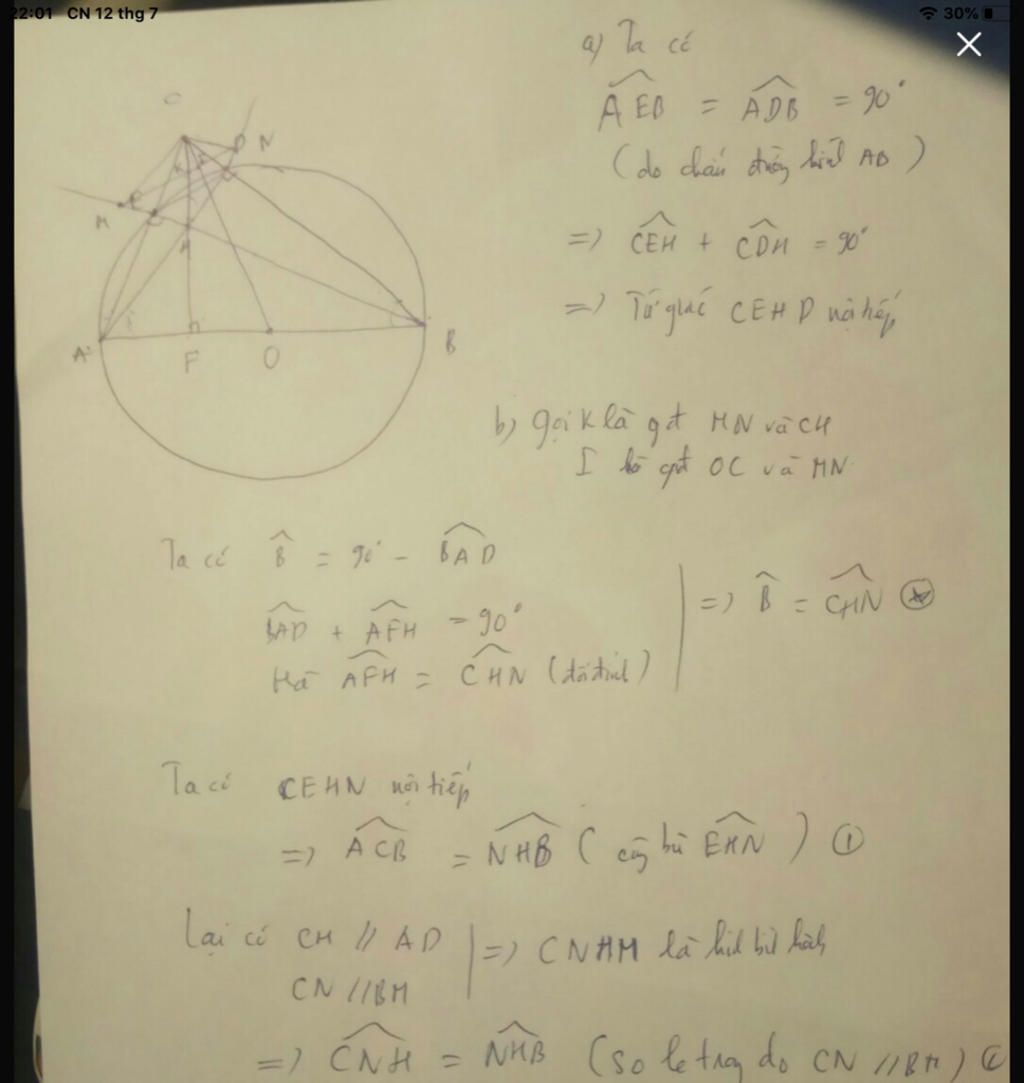 22:01 CN 12 thg 7
30%
a) Ta có
AEB = ADB = 90°
(do chắn đường kính AB)
=> CEH + CDH = 90°
=> Tứ giác CEHD nội tiếp
C
D N
M
E
H
A
F
O
B
b) gọi K là gđ MN và CH
I là gđ OC và MN
Ta có B = 90° - BAD
BAD + AFH = 90°
Mà AFH = CHN (đối đỉnh)
=> B = CHN
Ta có CEHN nội tiếp
=> ACB = NHB (cùng bù EHN) ①
Lại có CM // AD
CN // BM
=> CNHM là hình bình hành
=> CNH = NHB (so le trong do CN // BM)